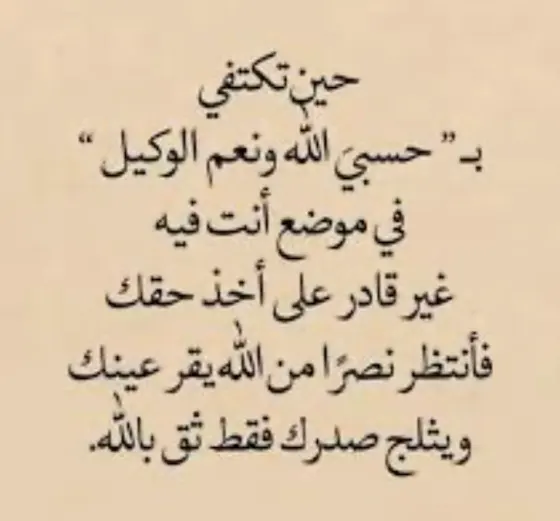 حين تكتفي
بـ” حسبيَ الله ونعم الوكيل “
في موضع أنت فيه
غير قادر على أخذ حقك
فأنتظر نصرًا من الله يقر عينك
ويثلج صدرك فقط ثق بالله.